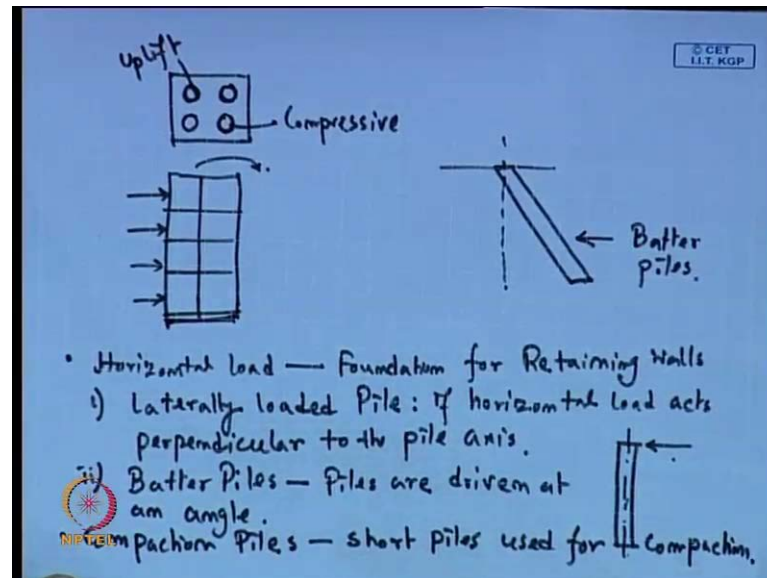 uplift
© CET
I.I.T. KGP
Compressive
Batter
piles.
• Horizontal load — Foundation for Retaining Walls
i) Laterally loaded Pile: If horizontal load acts
perpendicular to the pile axis.
ii) Batter Piles — Piles are driven at
an angle.
Compaction Piles — short piles used for compaction.
NPTEL